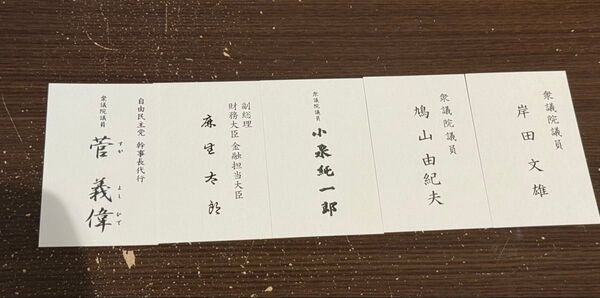 衆議院議員
岸田文雄
衆議院議員
鳩山由紀夫
衆議院議員
小泉純一郎
副総理
財務大臣 金融担当大臣
麻生太郎
自由民主党 幹事長代行
衆議院議員
菅義偉
すがよしひで